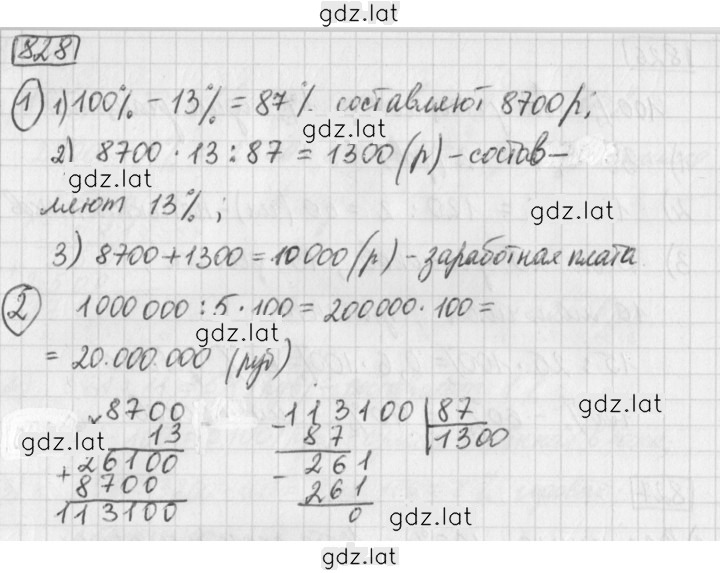 gdz.lat
828
1 1) 100% - 13% = 87% составляют 8700 р;
gdz.lat
2) 8700 · 13 : 87 = 1300 (р) - состав-
gdz.lat
ляют 13%;
gdz.lat
3) 8700 + 1300 = 10000 (р) - заработная плата
2 1000 000 : 5 · 100 = 200000 · 100 =
gdz.lat
= 20.000.000 (руб)
gdz.lat
8700
13
gdz.lat
+ 26100
8700
113100
- 113100 87
87 1300
- 261
261
0
gdz.lat
gdz.lat